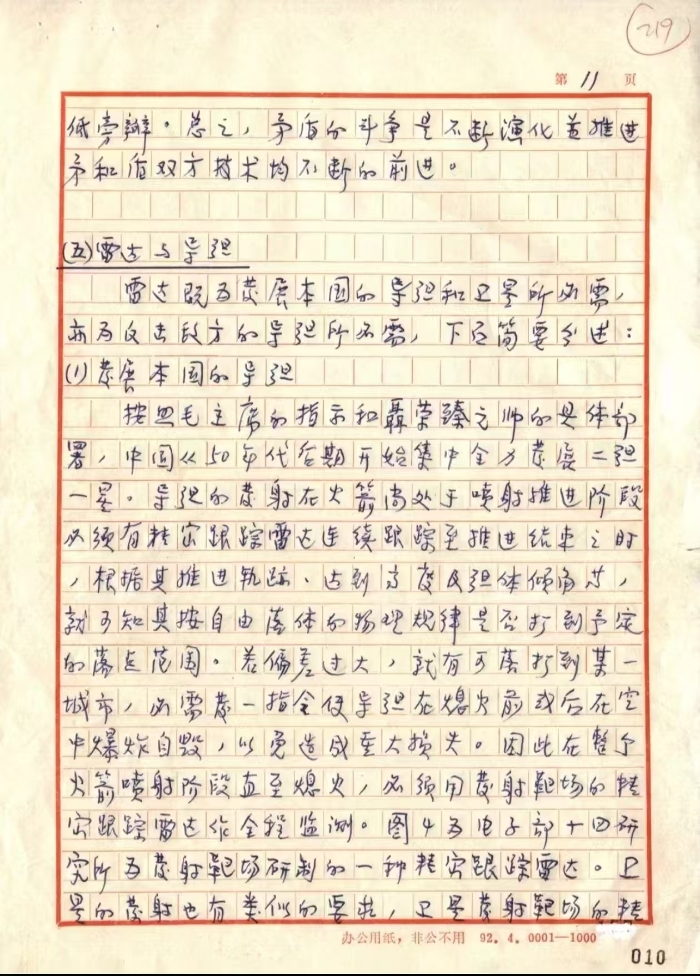 219
第 11 页
低旁瓣。总之,矛盾的斗争是不断演化并推进
矛和盾双方技术均不断的前进。
(五)雷达与导弹
雷达既为发展本国的导弹和卫星所必需,
亦为反击敌方的导弹所必需,下面简要分述:
(1)发展本国的导弹
按照毛主席的指示和聂荣臻元帅的具体部
署,中国从50年代后期开始集中全力发展二弹
一星。导弹的发射在火箭尚处于喷射推进阶段
必须有精密跟踪雷达连续跟踪至推进结束之时
,根据其推进轨迹、达到高度及弹体倾角等,
就可知其按自由落体的物理规律是否打到予定
的落点范围。若偏差过大,就有可落打到某一
城市,必需发一指令使导弹在熄火前或后在空
中爆炸自毁,以免造成重大损失。因此在整个
火箭喷射阶段直至熄火,必须用发射靶场的精
密跟踪雷达作全程监测。图4为电子部十四研
究所为发射靶场研制的一种精密跟踪雷达。卫
星的发射也有类似的要求,卫星发射靶场的精
办公用纸,非公不用 92.4.0001—1000
010